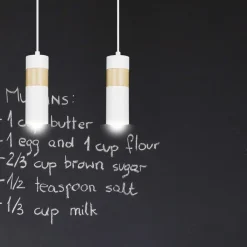 Muffins:
- 1 cup butter
- 1 egg and 1 cup flour
- 2/3 cup brown sugar
- 1/2 teaspoon salt
- 1/3 cup milk